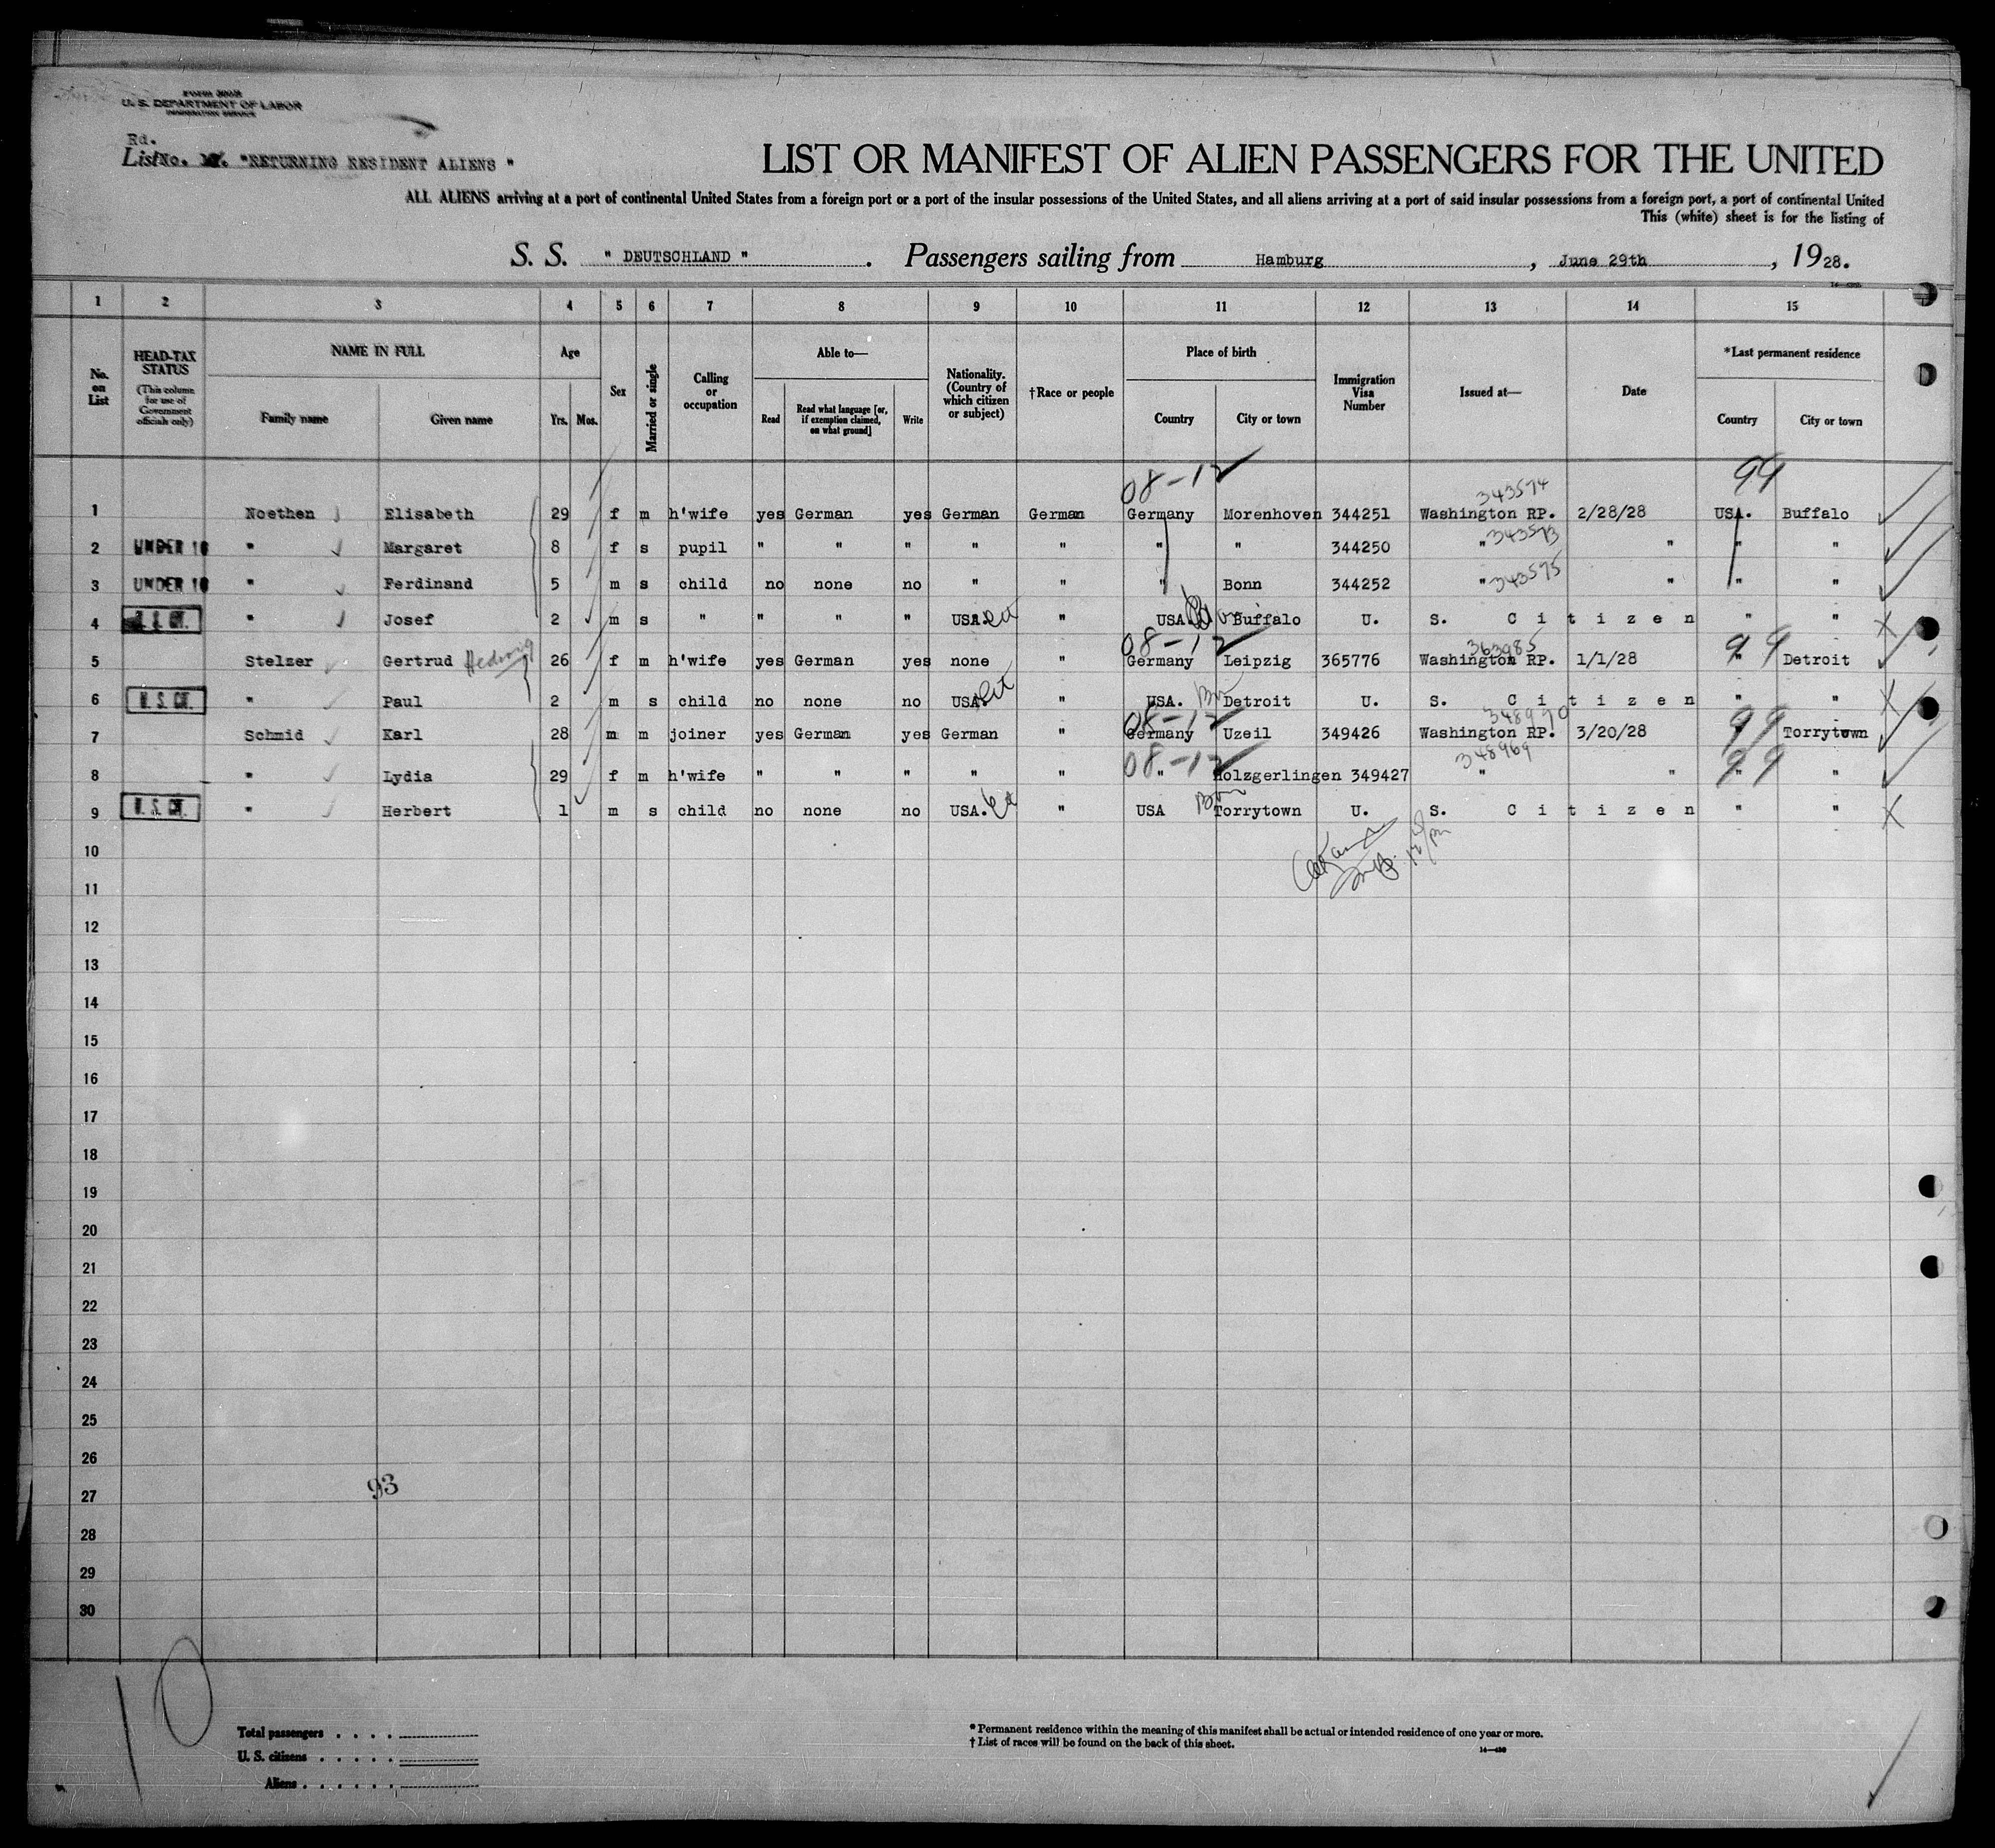 Form 500B
U. S. DEPARTMENT OF LABOR
IMMIGRATION SERVICE
Rd.
List No. "RETURNING RESIDENT ALIENS "
LIST OR MANIFEST OF ALIEN PASSENGERS FOR THE UNITED
ALL ALIENS arriving at a port of continental United States from a foreign port or a port of the insular possessions of the United States, and all aliens arriving at a port of said insular possessions from a foreign port, a port of continental United
This (white) sheet is for the listing of
S. S. " DEUTSCHLAND " . Passengers sailing from Hamburg , June 29th , 1928.
1 2 3 4 5 6 7 8 9 10 11 12 13 14 15
No. on List HEAD-TAX STATUS (This column for use of Government officials only) NAME IN FULL Family name Given name Age Yrs. Mos. Sex Married or single Calling or occupation Able to— Read Read what language [or, if exemption claimed, on what ground] Write Nationality. (Country of which citizen or subject) †Race or people Place of birth Country City or town Immigration Visa Number Issued at— Date *Last permanent residence Country City or town
08-12 343574 99
1 Noethen Elisabeth 29 f m h'wife yes German yes German German Germany Morenhoven 344251 Washington RP. 2/28/28 USA. Buffalo
2 UNDER 16 " Margaret 8 f s pupil " " " " " " " 344250 " 343573 " " "
3 UNDER 16 " Ferdinand 5 m s child no none no " " " Bonn 344252 " 343575 " " "
4 U. S. CIT. " Josef 2 m s " " " " USA. " USA. Buffalo U. S. Citizen " "
08-12 363985 99
5 Stelzer Gertrud Hedwig 26 f m h'wife yes German yes none " Germany Leipzig 365776 Washington RP. 1/1/28 " Detroit
6 U. S. CIT. " Paul 2 m s child no none no USA. " USA. Detroit U. S. Citizen " "
08-12 348970 99
7 Schmid Karl 28 m m joiner yes German yes German " Germany Uzeil 349426 Washington RP. 3/20/28 " Torrytown
08-12 348969 99
8 " Lydia 29 f m h'wife " " " " " " Holzgerlingen 349427 " " " "
9 U. S. CIT. " Herbert 1 m s child no none no USA. " USA Torrytown U. S. Citizen " "
10
11
12
13
14
15
16
17
18
19
20
21
22
23
24
25
26
93
27
28
29
30
10
Total passengers . . . .
U. S. citizens . . . . .
Aliens . . . . . .
* Permanent residence within the meaning of this manifest shall be actual or intended residence of one year or more.
† List of races will be found on the back of this sheet.